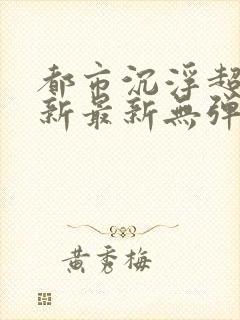 都市沉浮超
新最新無彈
黃秀梅